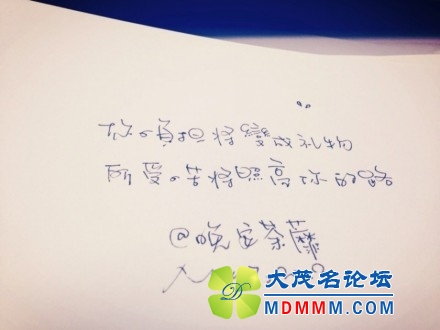 你の負担将變成礼物
所受の苦将照亮你的路
@晚安荼蘼
大茂名论坛
MDMMM.COM